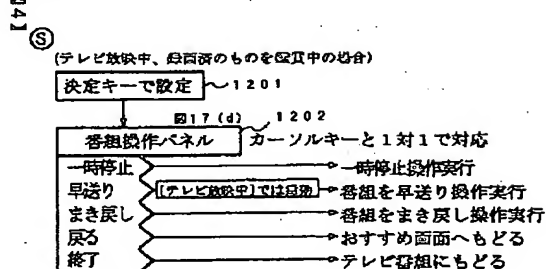 図4】
Ⓢ
(テレビ放映中、録画済のものを鑑賞中の場合)
決定キーで設定 1201
図17(d) 1202
番組操作パネル カーソルキーと1対1で対応
一時停止 一時停止操作実行
早送り [テレビ放映中]では 番組を早送り操作実行
まき戻し 番組をまき戻し操作実行
戻る おすすめ画面へもどる
終了 テレビ番組にもどる